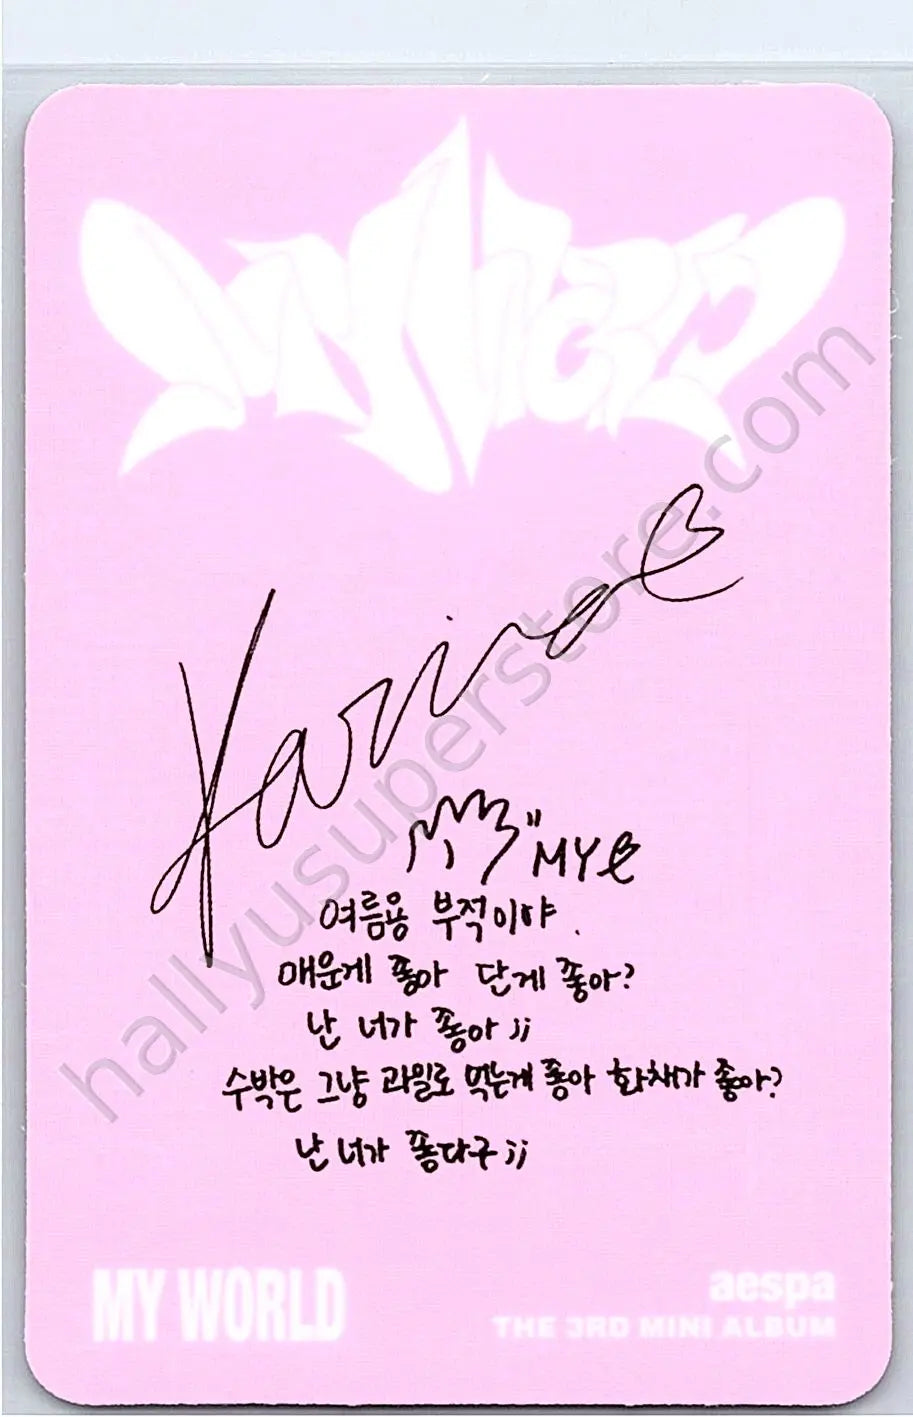 MY WORLD
Karina
"MY
여름용 부적이야.
매운게 좋아 단게 좋아?
난 너가 좋아;;
수박은 그냥 과일로 먹는게 좋아 화채가 좋아?
난 너가 좋다구;;
MY WORLD
aespa
THE 3RD MINI ALBUM
hallyusuperstore.com